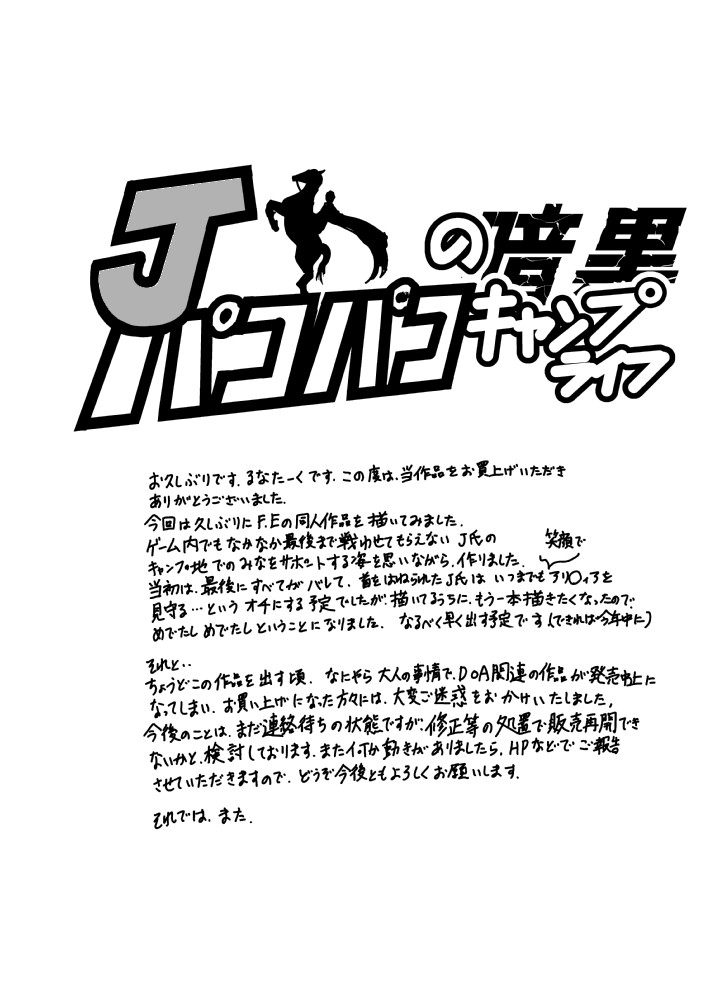 Jの暗黒
パコパコキャンプ
ライフ
お久しぶりです。るなたーくです。この度は、当作品をお買上げいただき
ありがとうございました。
今回は久しぶりにF.Eの同人作品を描いてみました。
ゲーム内でもなかなか最後まで戦わせてもらえない J氏の
キャンプ地でのみなをサポートする姿を思いながら、作りました。
笑顔で
当初は、最後にすべてがバレて、首をはねられたJ氏は いつまでもアリ○ィアを
見守る…という オチにする予定でしたが、描いてるうちに、もう一本描きたくなったので、
めでたし めでたしということになりました。 なるべく早く出す予定です(できれば今年中に)
それと..
ちょうどこの作品を出す頃、なにやら 大人の事情で、DoA関連の作品が発売中止に
なってしまい、お買い上げになった方々には、大変ご迷惑をおかけいたしました。
今後のことは、まだ連絡待ちの状態ですが、修正等の処置で販売再開でき
ないかと、検討しております。また何か動きがありましたら、HPなどでご報告
させていただきますので、どうぞ今後ともよろしくお願いします。
それでは、また。